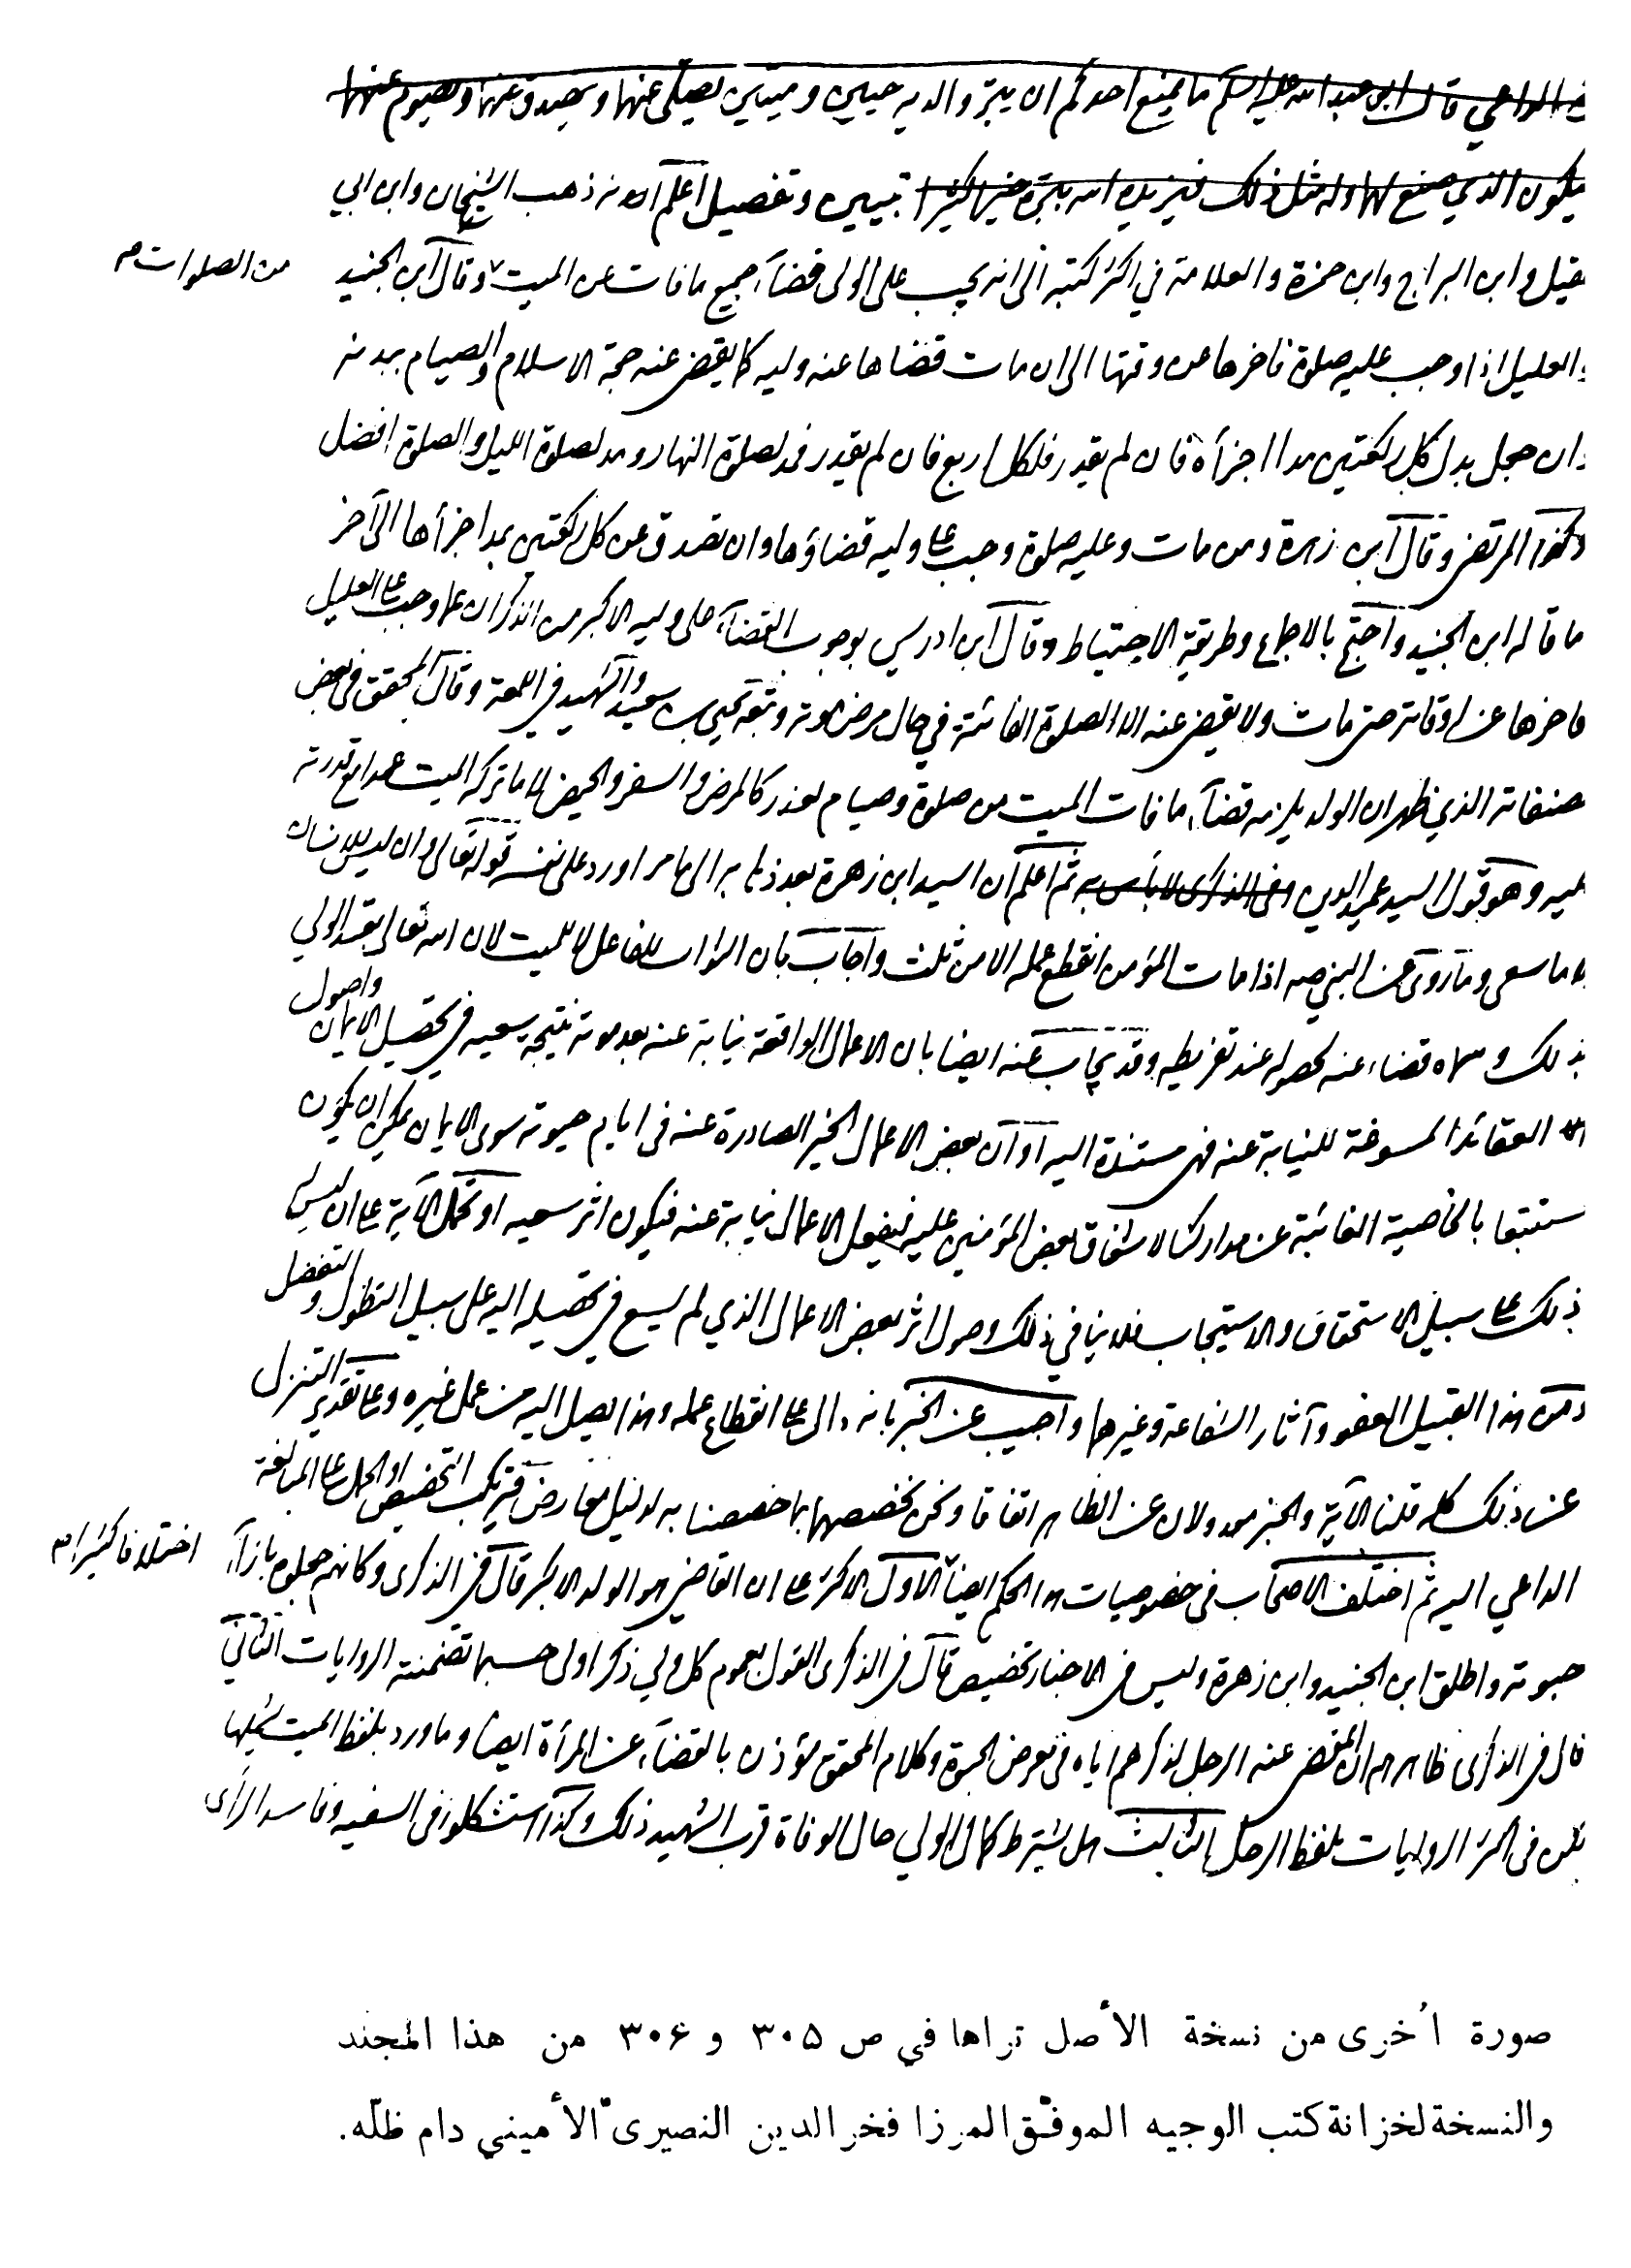 الداعي قال ابي عبد الله عليه السلم ما يمنع احدكم ان يبرّ والديه حيين وميتين يصلّي عنهما ويتصدق عنهما ويصوم عنهما
فيكون الذي صنع لهما وله مثل ذلك فيزيده الله ببرّه خيرا كثيرا تبيين وتفصيل اعلم انه ذهب الشيخان وابن ابي
عقيل وابن البراج وابن حمزة والعلامة في اكثر كتبه الى انه يجب على الولي قضآء جميع ما فات عن الميت وقال ابن الجنيد
من الصلوات صح
والعليل اذا وجب عليه صلوة فاخرها عن وقتها الى ان مات قضاها عنه وليه كما يقضي عنه حجة الاسلام والصيام ببدنه
وان جعل بدل كل ركعتين مدا اجزأه فان لم يقدر فلكل اربع فان لم يقدر فمد لصلوة النهار ومد لصلوة الليل والصلوة افضل
وكذا المرتضى وقال ابن زهرة ومن مات وعليه صلوة وجب على وليه قضاؤها وان تصدق عن كل ركعتين بمد اجزأها الى آخر
ما قاله ابن الجنيد واحتج بالاجماع وطريقة الاحتياط وقال ابن ادريس بوجوب القضآء على وليه الاكبر من الذكران ما وجب على العليل
فاخرها عن اوقاته حتى مات ولا يقضي عنه الا الصلوة الفائتة في حال مرض موته وتبعه يحيى بن سعيد والشهيد في اللمعة وقال المحقق في بعض
مصنفاته الذي ظهر ان الولد يلزمه قضآء ما فات الميت من صلوة وصيام لعذر كالمرض والسفر والحيض لا ما تركه الميت عمدا مع قدرته
عليه وهو قول السيد عميد الدين وفى الذكرى لا بأس به ثم اعلم ان السيد ابن زهرة بعد ذهابه الى ما مر اورد على نفسه قوله تعالى وان ليس للانسان
الا ما سعى وما روى عن النبي صه اذا مات المؤمن انقطع عمله الا من ثلث واجاب بان الثواب للفاعل لا للميت لان الله تعالى تعبد الولي
بذلك وسماه قضاء عنه لحصوله عند تفريطه وقد يجاب عنه ايضا بان الاعمال الواقعة نيابة عنه بعد موته نتيجة سعيه في تحصيل الايمان واصول
العقائد المسوغة للنيابة عنه فهي مستندة اليه او ان بعض الاعمال الخير الصادرة عنه فى ايام حيوته سوى الايمان يمكن ان يكون
مستتبعا بالخاصية الغائبة عن مداركنا لاشفاق بعض المؤمنين عليه ليفعل الاعمال نيابة عنه فيكون اثر سعيه او تحمل الآية على ان ليس له
ذلك على سبيل الاستحقاق والاستيجاب فلا ينافي ذلك وصول اثر بعض الاعمال الذي لم يسع في تحصيله اليه على سبيل التطول والتفضل
ومن هذا القبيل العفو وآثار الشفاعة وغيرها واجيب عن الخبر بانه دال على انقطاع عمله وهذا يصل اليه من عمل غيره وعلى تقدير التنزل
عن ذلك كله قلنا الآية والخبر معدولان عن الظاهر اتفاقا ونحن نخصصهما بما خصصنا به لدليل معارض فيرتكب التخصيص او الحمل على المبالغة
الداعي اليه ثم اختلف الاصحاب فى خصوصيات هذا الحكم ايضا الاول الاكثر على ان القاضي هو الولد الاكبر قال في الذكرى وكانهم جعلوه بازآء
اختلافا كثيرا صح
حبوته واطلق ابن الجنيد وابن زهرة وليس في الاخبار تخصيص قال في الذكرى القول بعموم كل ولي ذكر اولى حسبما تضمنته الروايات الثاني
قال في الذكرى ظاهرهم ان المقضي عنه الرجل لذكرهم اياه فى معرض الحبوة وكلام المحقق مؤذن بالقضآء عن المرأة ايضا وما ورد بلفظ الميت يشملها
لكن فى اكثر الروايات بلفظ الرجل الثالث هل يشترط كمال الولي حال الوفاة قرب الشهيد ذلك وكذا استشكلوا فى السفيه وفاسد الرأى
صورة اُخرى من نسخة الأصل تراها في ص ٣٠٥ و ٣٠۶ من هذا المجلد
والنسخة لخزانة كتب الوجيه الموفّق المرزا فخر الدين النصيرى الأميني دام ظلّه.